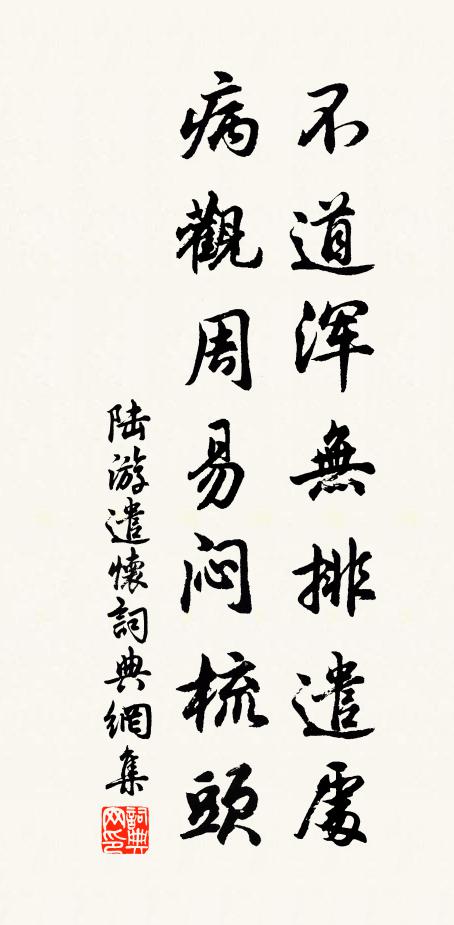 不道浑無排遣處
病觀周易闷梳頭
陆游遣懷詞典網集
詞典網印